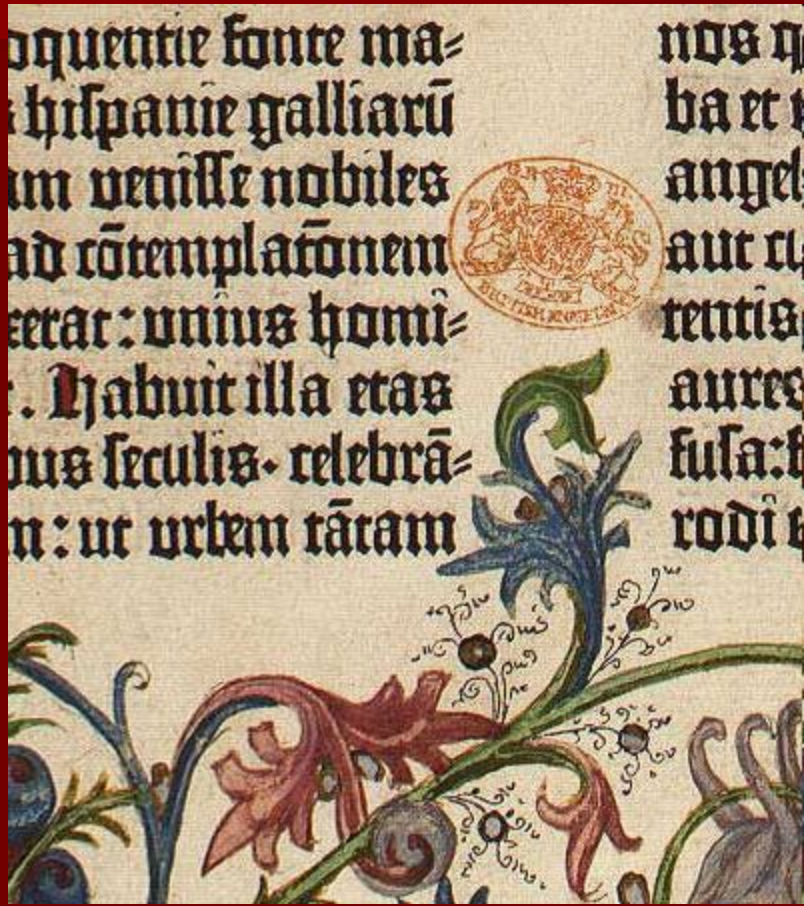 oquentie fonte ma⸗
s hiſpanie galliarū
am veniſſe nobiles
ad cōtemplatōnem
xerat : unius homi⸗
. Habuit illa etas
bus ſeculis· celebrā⸗
m : ut urbem tātam
nos q
ba et
angel
aut cu
tentis
aures
fuſa:
rodi